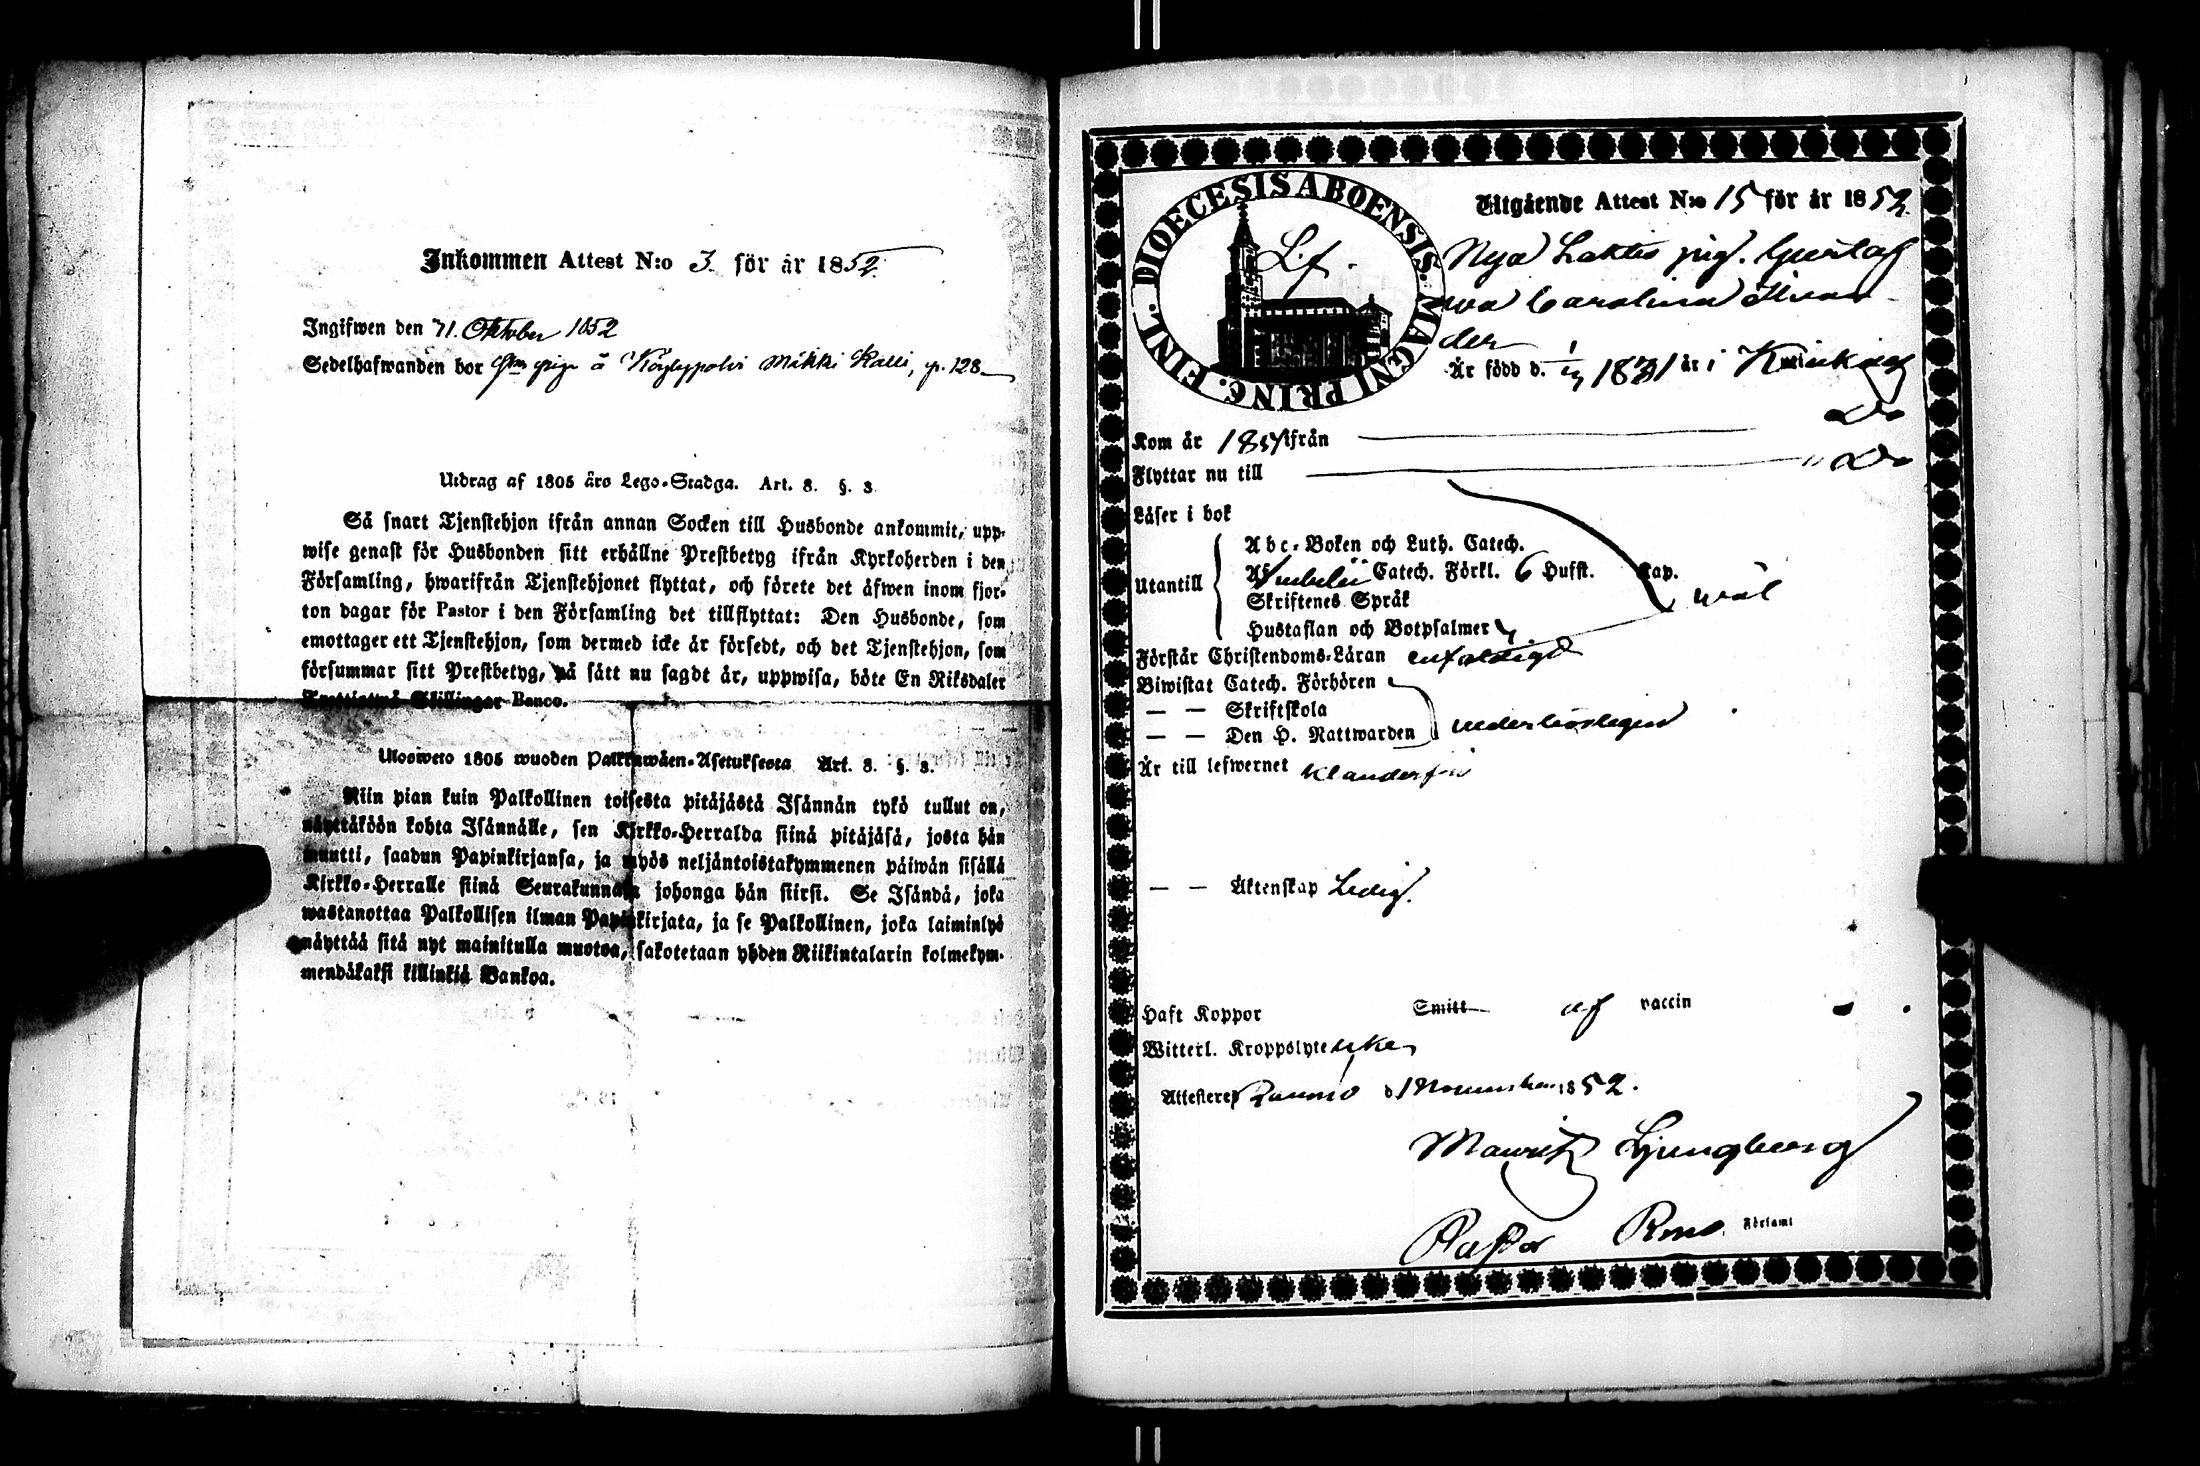 Inkommen Attest N:o 3 för år 1852
Ingifwen den 71. Oktober 1852
Sedelhafwanden bor piga å Köylypolvi Mäkki Kalli, p. 128
Utdrag af 1805 års Lego-Stadga. Art. 8. §. 3
Så snart Tjenstehjon ifrån annan Socken till Husbonde ankommit, upp-
wise genast för Husbonden sitt erhållne Prestbetyg ifrån Kyrkoherden i den
Församling, hwarifrån Tjenstehjonet flyttat, och förete det äfwen inom fjor-
ton dagar för Pastor i den Församling det tillflyttat: Den Husbonde, som
emottager ett Tjenstehjon, som dermed icke är försedt, och det Tjenstehjon, som
försummar sitt Prestbetyg, på sätt nu sagdt är, uppwisa, böte En Riksdaler
Trettiotwå Skillingar Banco.
Ulosweto 1805 wuoden Palkkawäen-Asetuksesta Art. 8. §. 3.
Niin pian kuin Palkollinen toisesta pitäjästä Isännän tykö tullut on,
näyttäköön kohta Isännälle, sen Kirkko-Herralda siinä pitäjäsä, josta hän
muutti, saadun Papinkirjansa, ja myös neljäntoistakymmenen päiwän sisällä
Kirkko-Herralle siinä Seurakunnasa johonga hän siirsi. Se Isändä, joka
wastanottaa Palkollisen ilman Papinkirjata, ja se Palkollinen, joka laiminlyö
näyttää sitä nyt mainitulla muotoa, sakotetaan yhden Riikintalarin kolmekym-
mendäkaksi killinkiä Bankoa.
DIOECESIS ABOENSIS. MAGNI PRINC. FINL.
L.f.
Utgående Attest N:o 15 för år 1852
Nya Laktis pig. Gustaf
wa Carolina
der
Är född d. 1831 år i
Kom år 1851 ifrån Do
Flyttar nu till " Do
Läser i bok
Utantill
Abc-Boken och Luth. Catech.
Catech. Förkl. 6 Hufst. Kap.
Skriftenes Språk
wäl
Hustaflan och Botpsalmer
Förstår Christendoms-Läran enfaldigt
Biwistat Catech. Förhören
— — Skriftskola
— — Den H. Nattwarden wederbörligen
Är till lefwernet klanderfri
— — Äktenskap Ledig.
Haft Koppor Smitt af vaccin
Witterl. Kroppslyte icke
Attesterer Raumo d 1 November 1852.
Mauritz Ljungberg
Pastor Rmo Församl